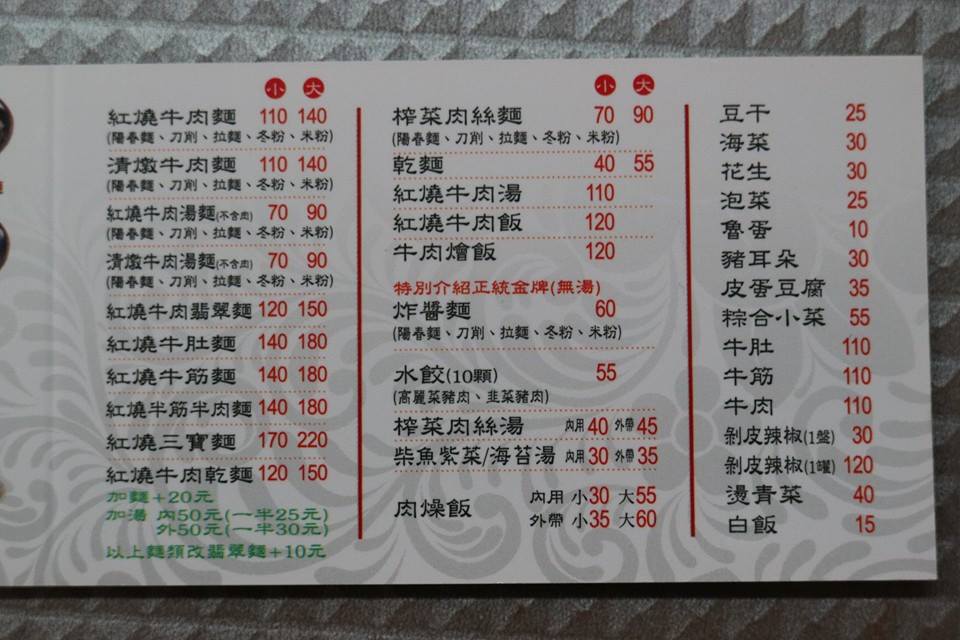 小 大
紅燒牛肉麵 110 140
(陽春麵、刀削、拉麵、冬粉、米粉)
清燉牛肉麵 110 140
(陽春麵、刀削、拉麵、冬粉、米粉)
紅燒牛肉湯麵(不含肉) 70 90
(陽春麵、刀削、拉麵、冬粉、米粉)
清燉牛肉湯麵(不含肉) 70 90
(陽春麵、刀削、拉麵、冬粉、米粉)
紅燒牛肉翡翠麵 120 150
紅燒牛肚麵 140 180
紅燒牛筋麵 140 180
紅燒半筋半肉麵 140 180
紅燒三寶麵 170 220
紅燒牛肉乾麵 120 150
加麵+20元
加湯 內50元(一半25元)
外50元(一半30元)
以上麵類改翡翠麵+10元
小 大
榨菜肉絲麵 70 90
(陽春麵、刀削、拉麵、冬粉、米粉)
乾麵 40 55
紅燒牛肉湯 110
紅燒牛肉飯 120
牛肉燴飯 120
特別介紹正統金牌(無湯)
炸醬麵 60
(陽春麵、刀削、拉麵、冬粉、米粉)
水餃(10顆) 55
(高麗菜豬肉、韭菜豬肉)
榨菜肉絲湯 內用 40 外帶 45
柴魚紫菜/海苔湯 內用 30 外帶 35
肉燥飯 內用 小30 大55
外帶 小35 大60
豆干 25
海菜 30
花生 30
泡菜 25
魯蛋 10
豬耳朵 30
皮蛋豆腐 35
粽合小菜 55
牛肚 110
牛筋 110
牛肉 110
剝皮辣椒(1盤) 30
剝皮辣椒(1罐) 120
燙青菜 40
白飯 15